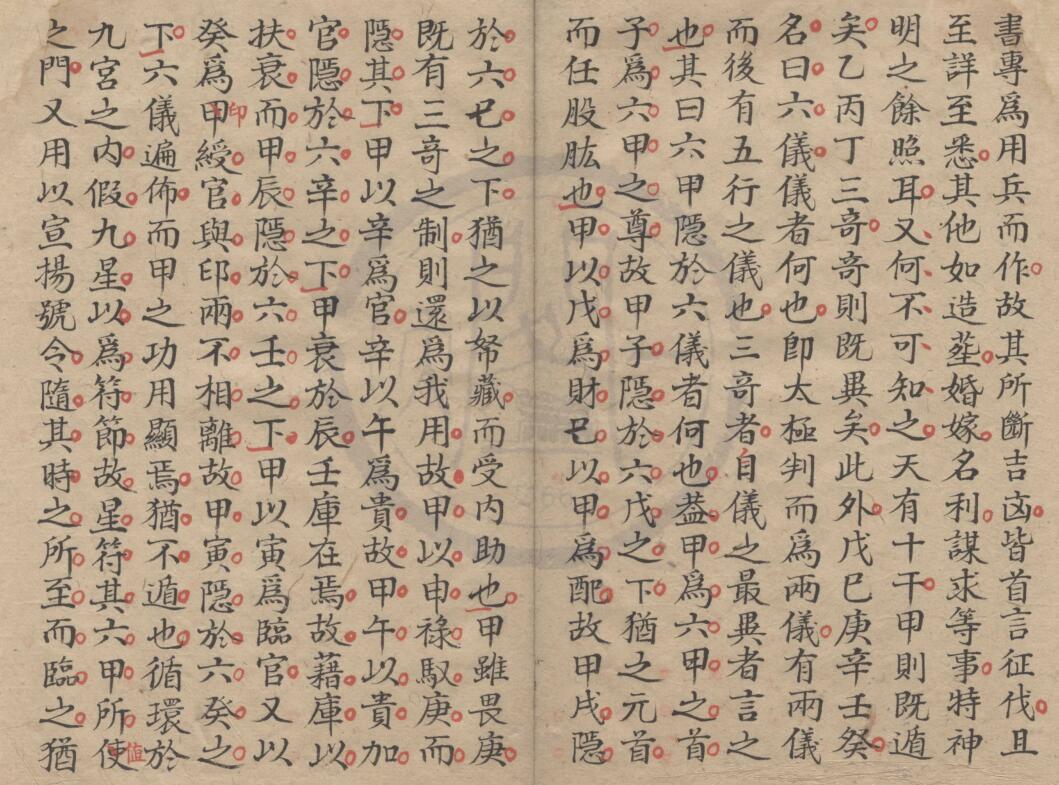 書專爲用兵而作故其所斷吉凶皆首言征伐且
至詳至悉其他如造葬婚嫁名利謀求等事特神
明之餘照耳又何不可知之天有十干甲則既遁
矣乙丙丁三奇奇則既異矣此外戊巳庚辛壬癸
名曰六儀儀者何也卽太極判而爲兩儀有兩儀
而後有五行之儀也三奇者自儀之最異者言之
也其曰六甲隱於六儀者何也葢甲爲六甲之首
子爲六甲之尊故甲子隱於六戊之下猶之元首
而任股肱也甲以戊爲財巳以甲爲配故甲戌隱
於六巳之下猶之以帑藏而受內助也甲雖畏庚
既有三奇之制則還爲我用故甲以申祿馭庚而
隱其下甲以辛爲官辛以午爲貴故甲午以貴加
官隱於六辛之下甲衰於辰壬庫在焉故藉庫以
扶衰而甲辰隱於六壬之下甲以寅爲臨官又以
癸爲甲印綬官與印兩不相離故甲寅隱於六癸之
下六儀遍佈而甲之功用顯焉猶不遁也循環於
九宮之內假九星以爲符節故星符其六甲所值使
之門又用以宣揚號令隨其時之所至而臨之猶